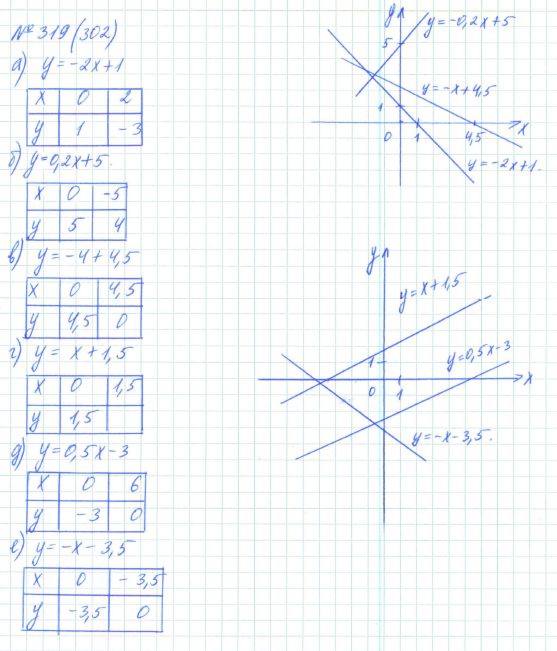 № 319 (302)
а) y = -2x+1
x 0 2
y 1 -3
б) y=0,2x+5.
x 0 -5
y 5 4
в) y = -4 + 4,5
x 0 4,5
y 4,5 0
г) y = x + 1,5
x 0 1,5
y 1,5
д) y = 0,5x - 3
x 0 6
y -3 0
е) y = -x - 3,5
x 0 -3,5
y -3,5 0
y
y=-0,2x+5
5
y=-x+4,5
1
x
0 1 4,5
y=-2x+1.
y
y=x+1,5
y=0,5x-3
1
0 1 x
y=-x-3,5.